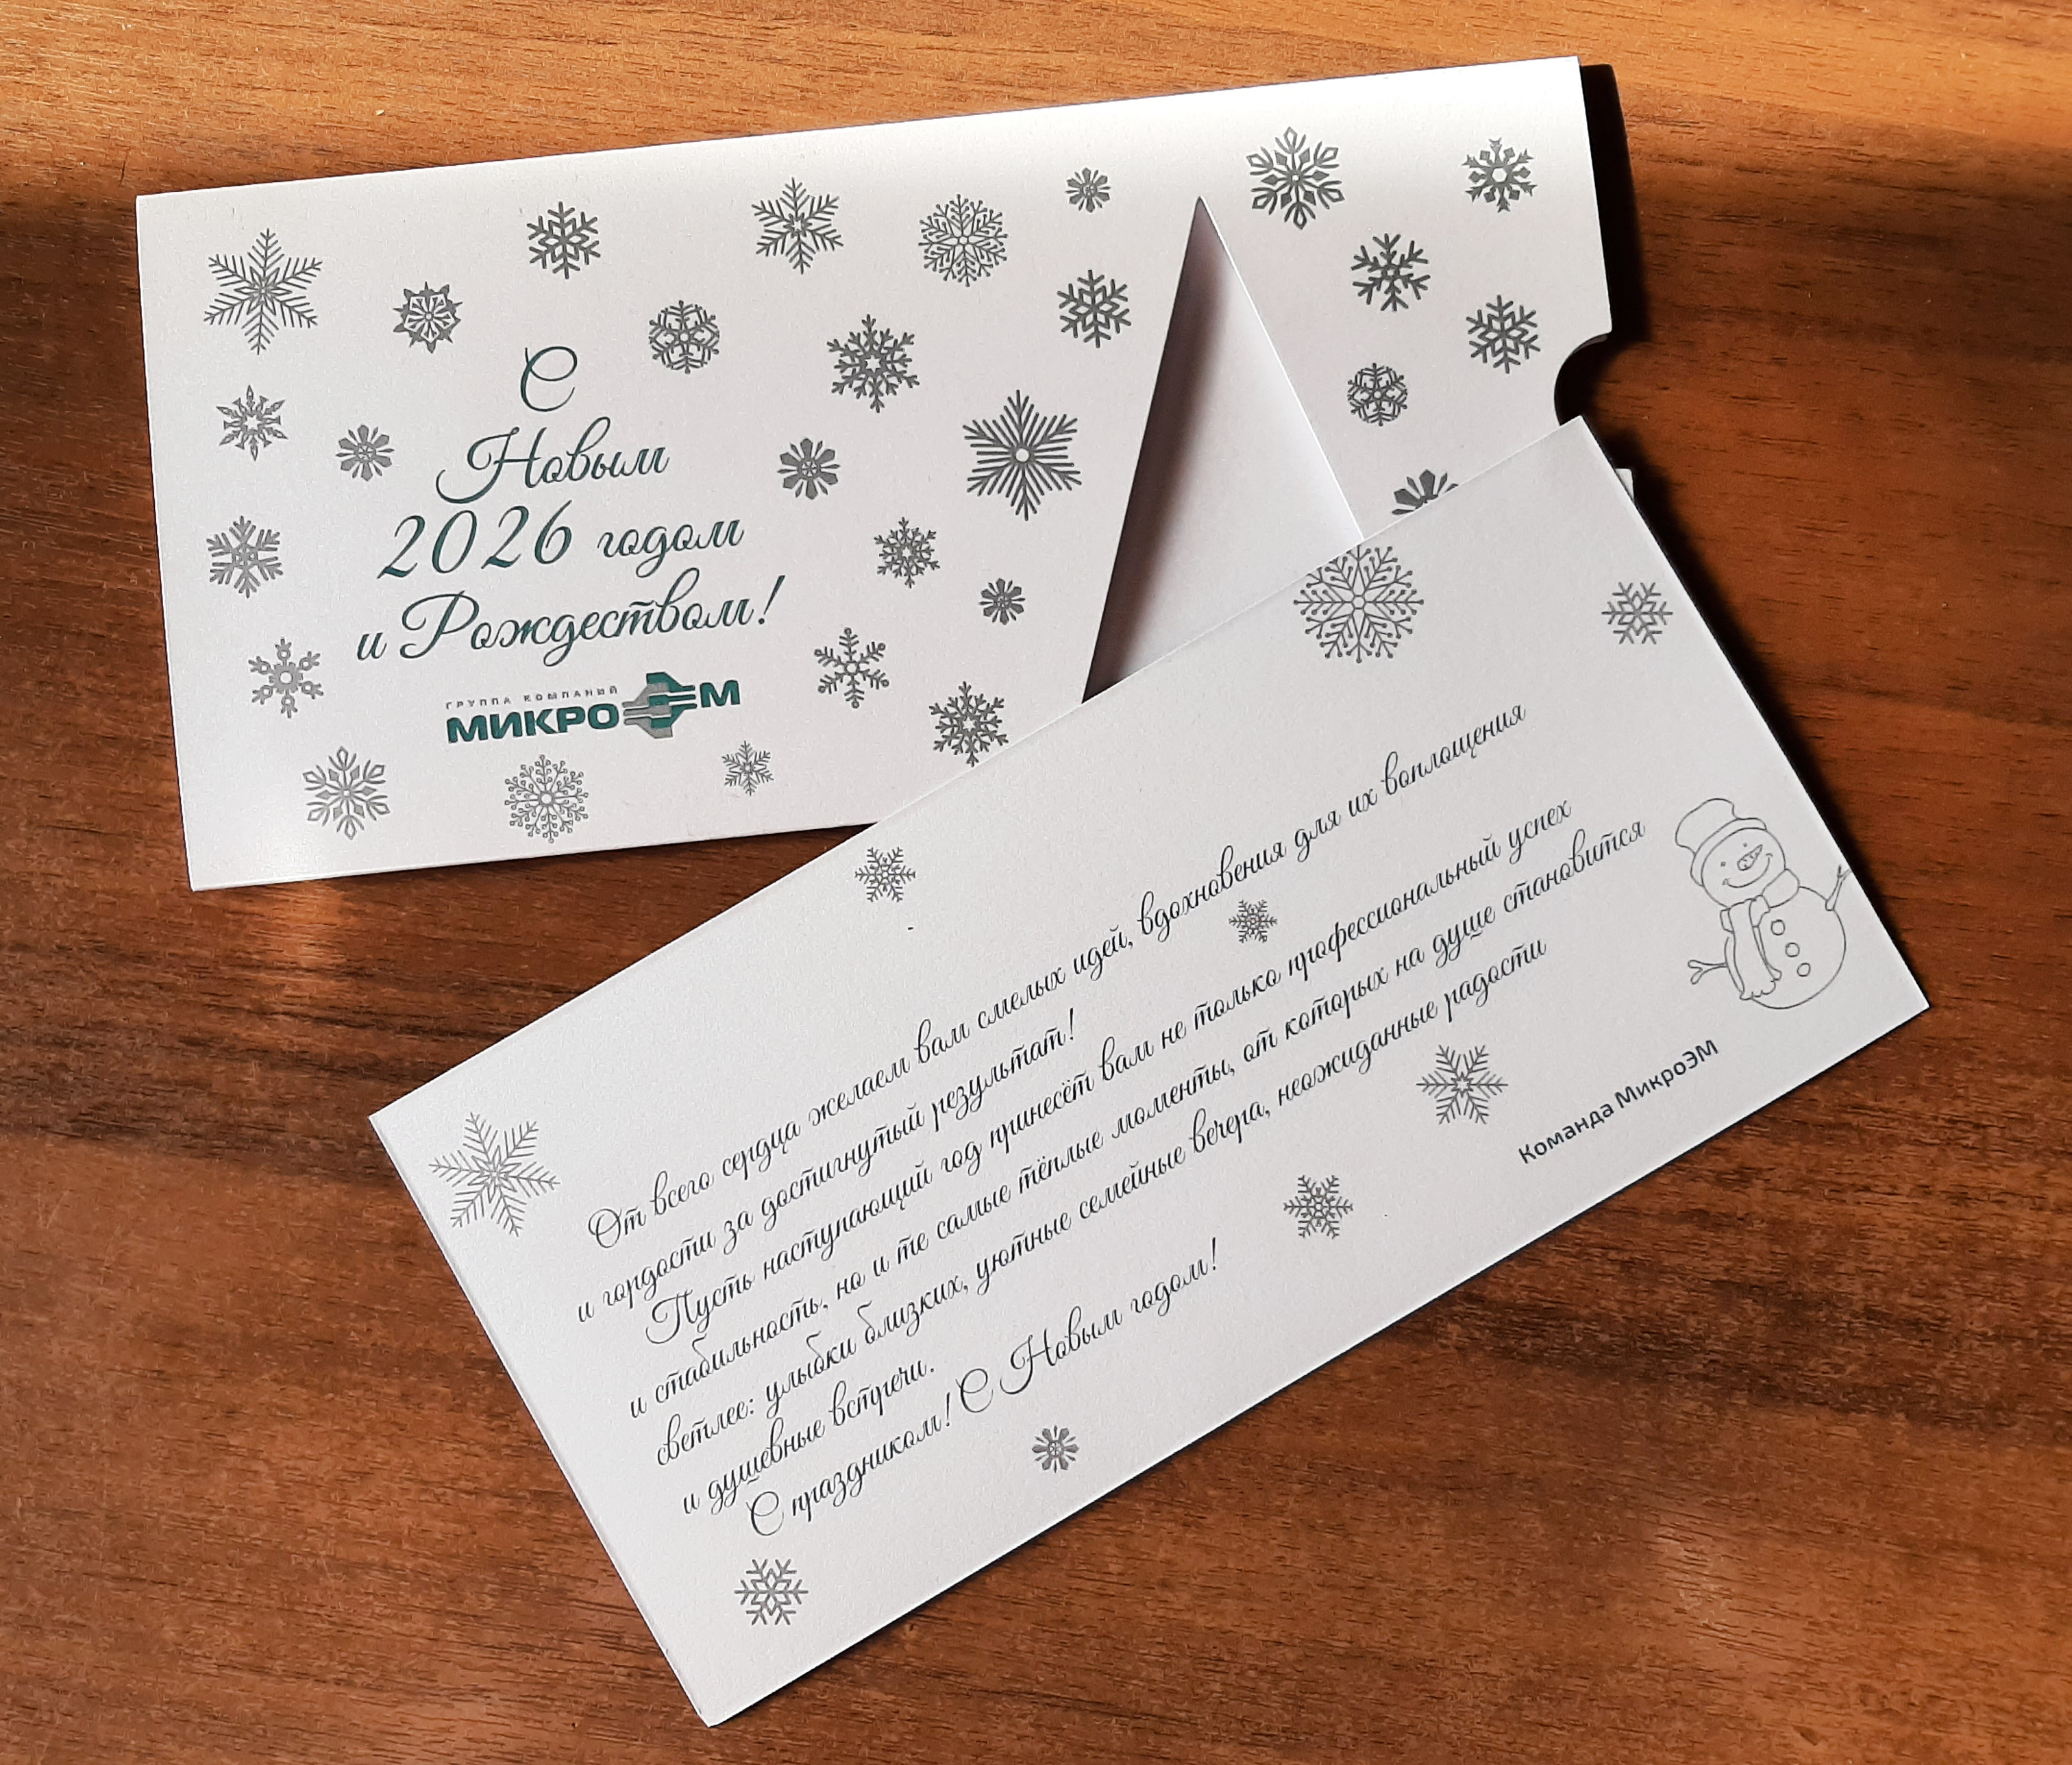 С
Новым
2026 годом
и Рождеством!
ГРУППА КОМПАНИЙ
МИКРО ЭМ
От всего сердца желаем вам смелых идей, вдохновения для их воплощения
и гордости за достигнутый результат!
Пусть наступающий год принесёт вам не только профессиональный успех
и стабильность, но и те самые тёплые моменты, от которых на душе становится
светлее: улыбки близких, уютные семейные вечера, неожиданные радости
и душевные встречи.
С праздником! С Новым годом!
Команда МикроЭМ